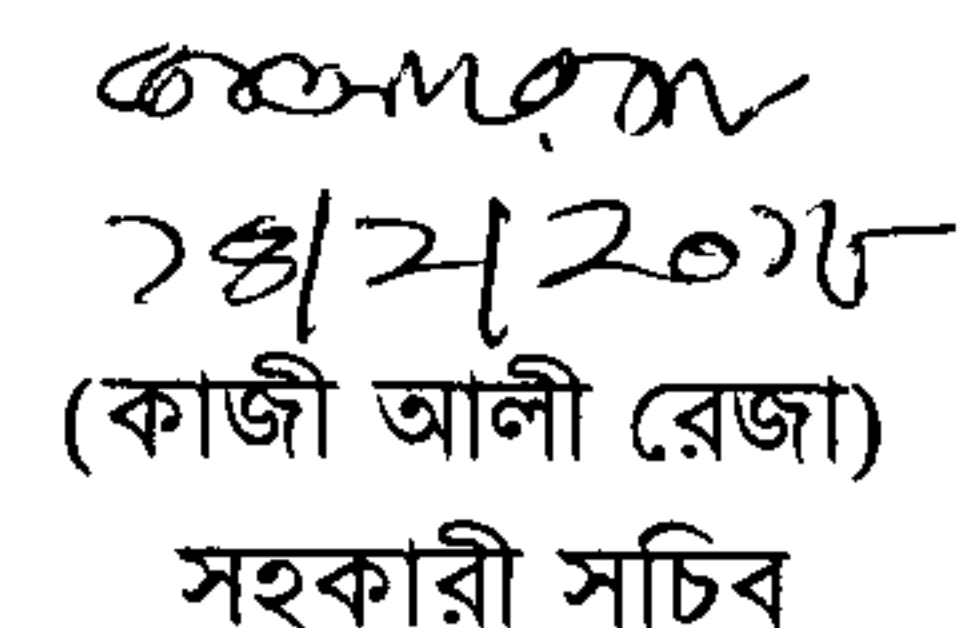 ১৪/২/২০১৮
(কাজী আলী রেজা)
সহকারী সচিব